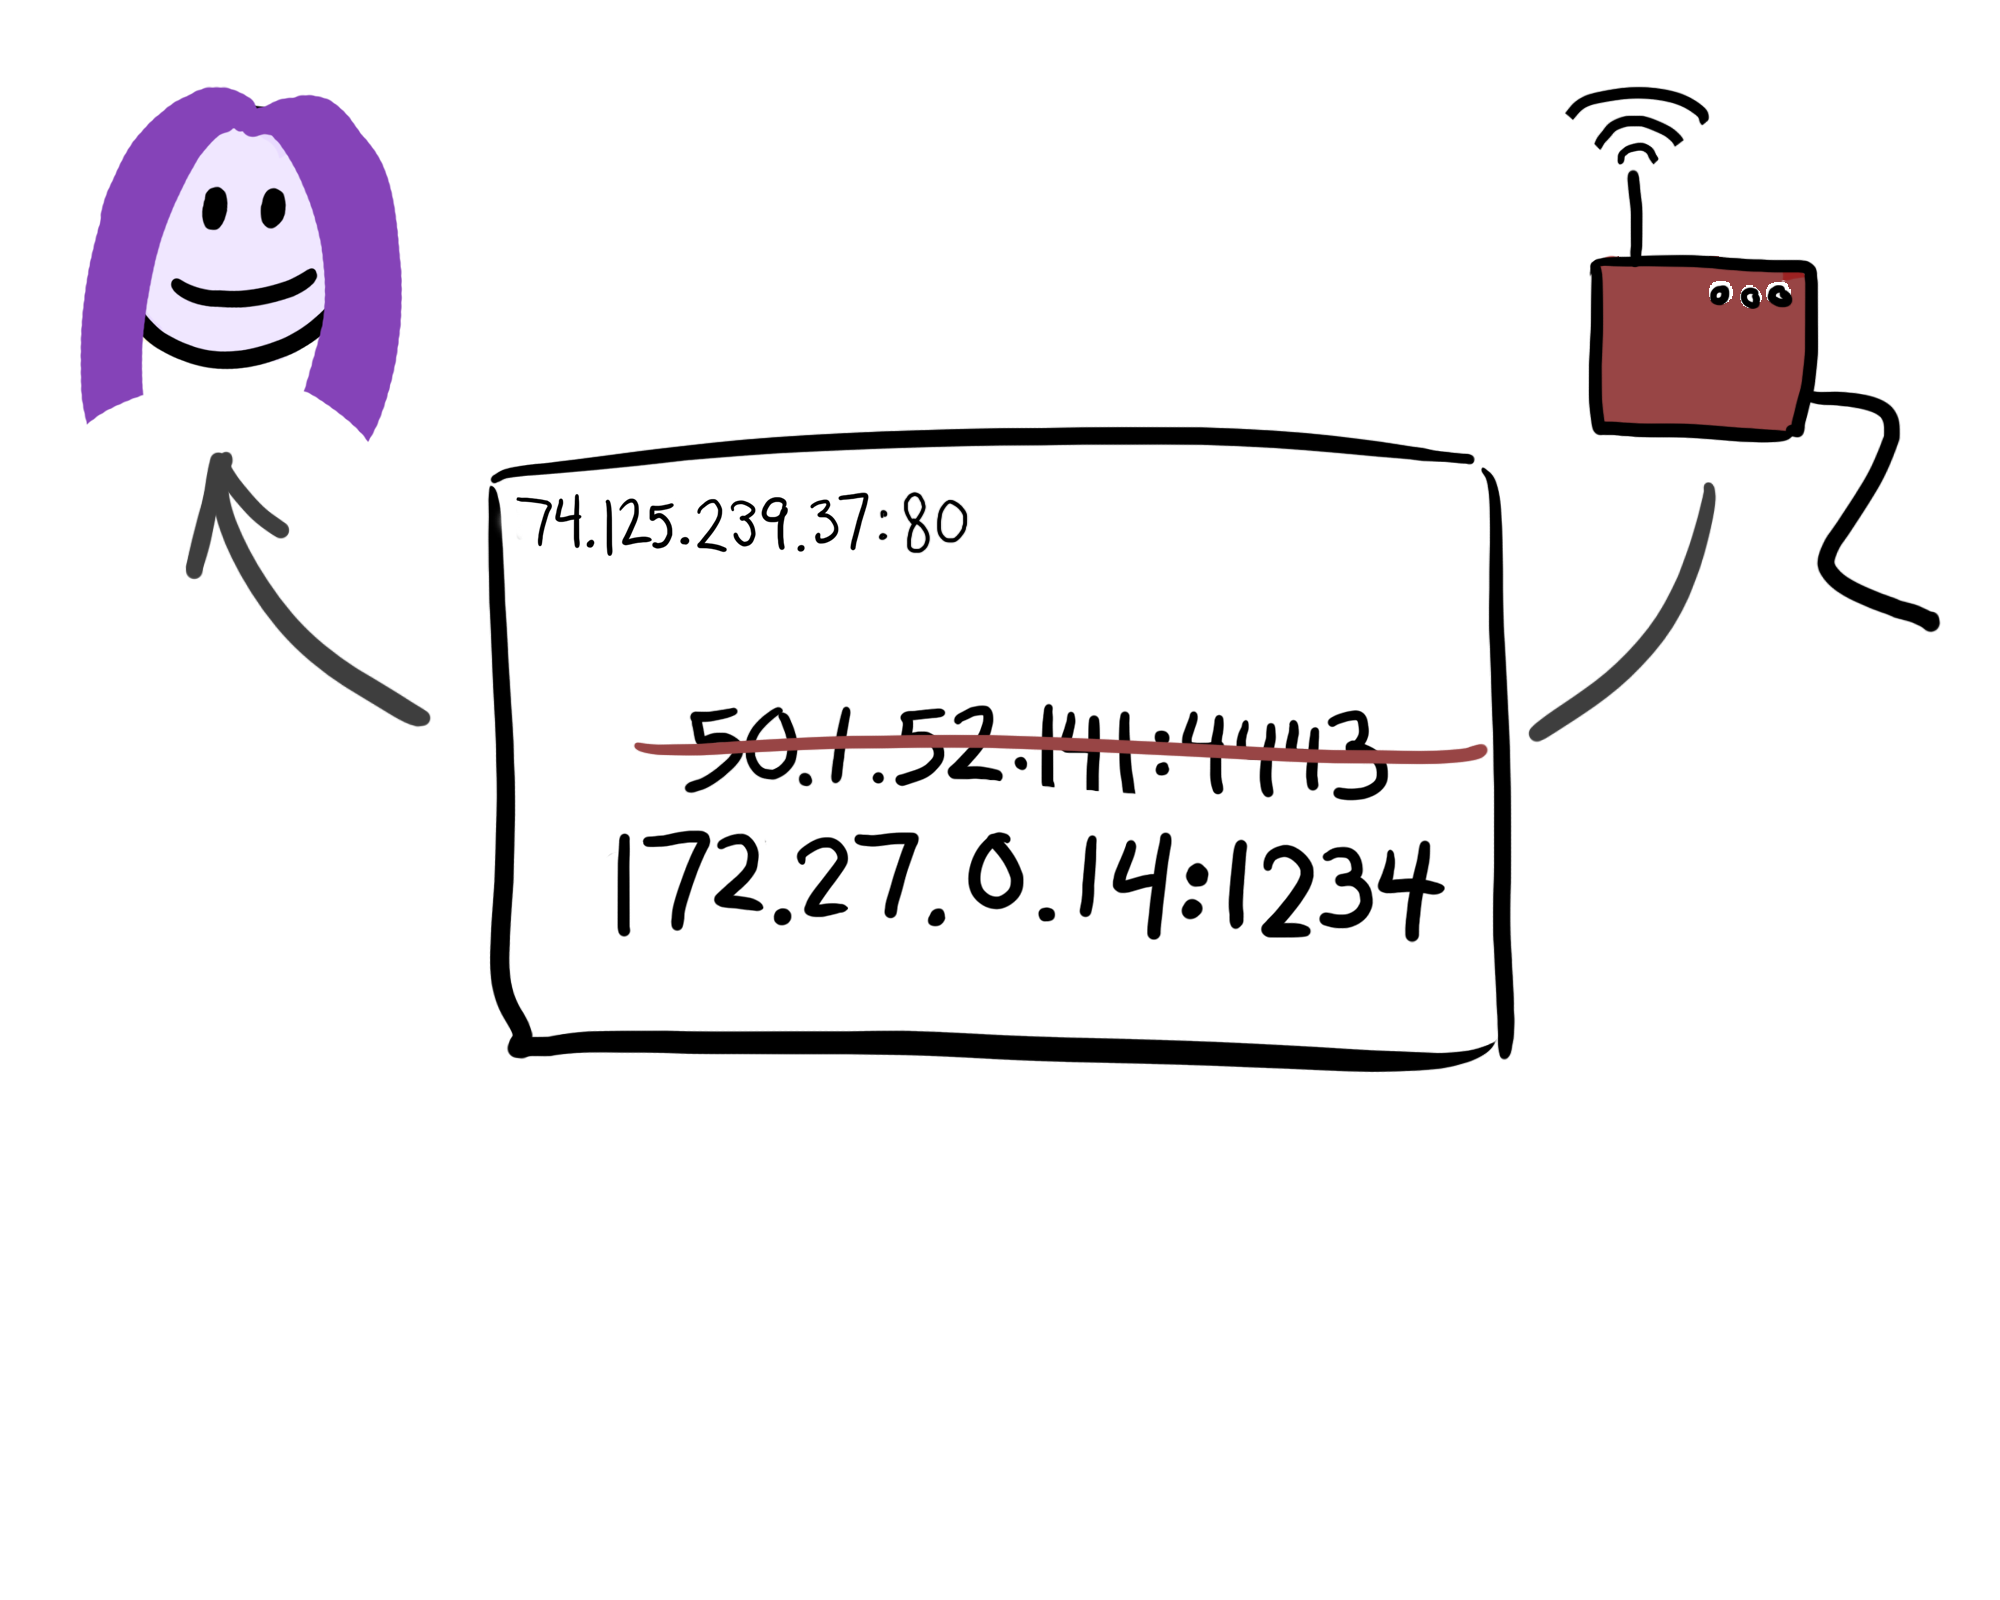 74.125.239.37:80
50.1.52.141:4443
172.27.0.14:1234